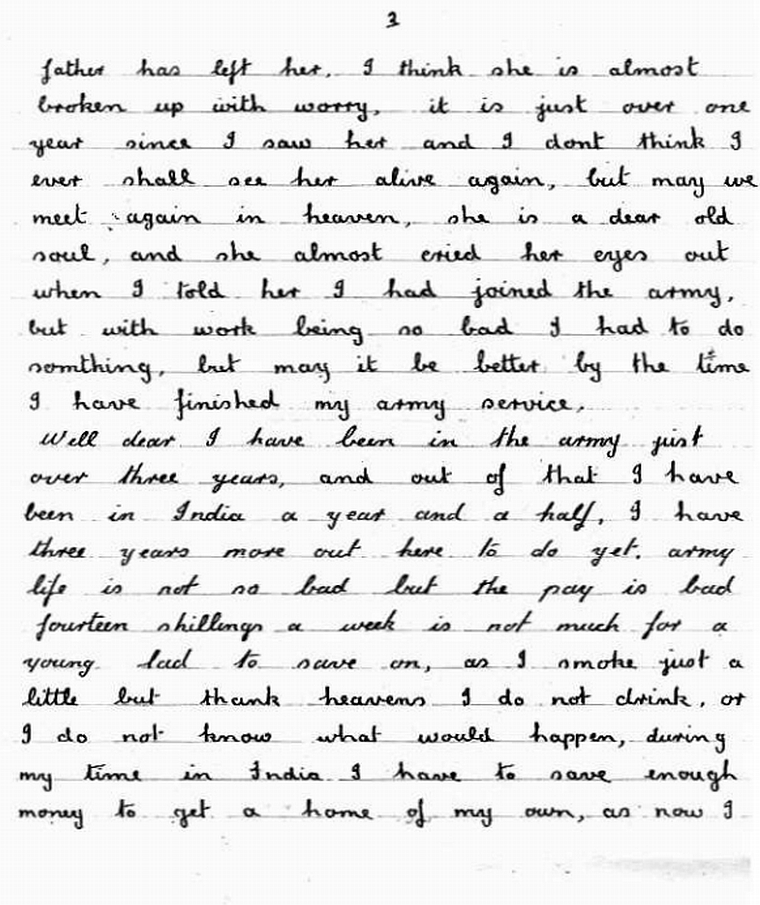 3
father has left her. I think she is almost
broken up with worry, it is just over one
year since I saw her and I dont think I
ever shall see her alive again, but may we
meet again in heaven, she is a dear old
soul, and she almost cried her eyes out
when I told her I had joined the army,
but with work being so bad I had to do
somthing, but may it be better by the time
I have finished my army service.
Well dear I have been in the army just
over three years, and out of that I have
been in India a year and a half, I have
three years more out here to do yet. army
life is not so bad but the pay is bad
fourteen shillings a week is not much for a
young lad to save on, as I smoke just a
little but thank heavens I do not drink, or
I do not know what would happen, during
my time in India I have to save enough
money to get a home of my own, as now I